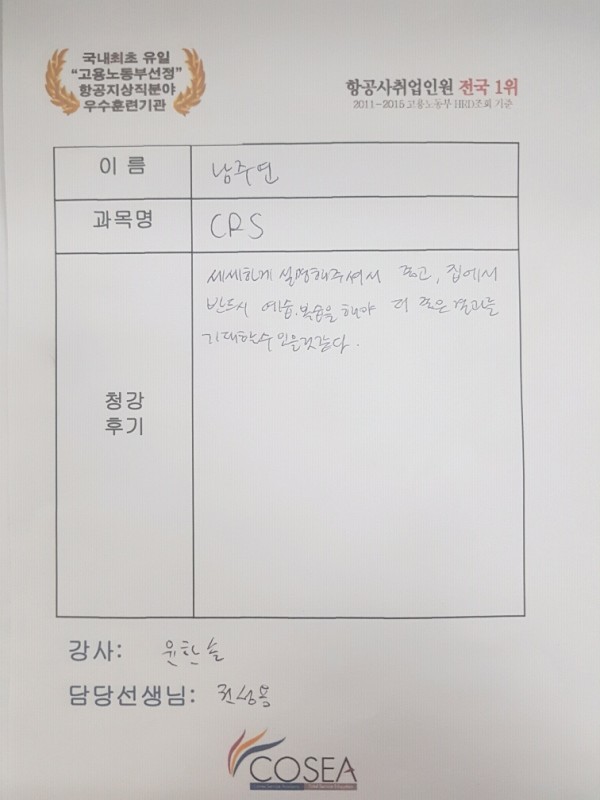 국내최초 유일
“고용노동부선정”
항공지상직분야
우수훈련기관
항공사취업인원 전국 1위
2011~2015 고용노동부 HRD조회 기준
이 름
남주연
과목명
CRS
청강
후기
세세하게 설명해주셔서 좋고, 집에서
반드시 예습.복습을 해야 더 좋은 결과를
기대할수 있을것같다.
강사: 윤한솔
담당선생님:
COSEA